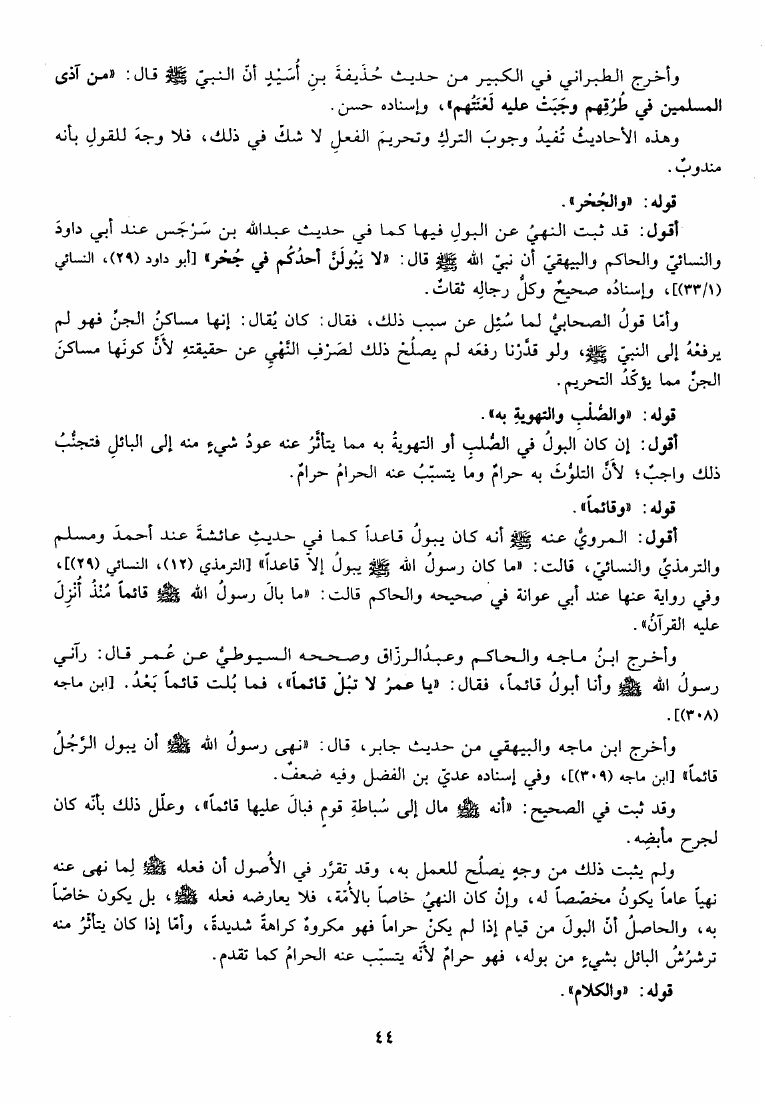 وأخرج الطبراني في الكبير من حديث حُذَيفةَ بنِ أُسَيْدٍ أنّ النبيّ ﷺ قال: «من آذى
المسلمين في طُرُقِهم وجَبَتْ عليه لَعْنَتُهم»، وإسناده حسن.
وهذه الأحاديثُ تُفيدُ وجوبَ التركِ وتحريمَ الفعلِ لا شكّ في ذلك، فلا وجهَ للقولِ بأنه
مندوبٌ.
قوله: «والجُحْر».
أقول: قد ثبت النهيُ عن البولِ فيها كما في حديث عبدالله بن سَرْجَس عند أبي داودَ
والنسائيّ والحاكم والبيهقيّ أن نبيّ الله ﷺ قال: «لا يَبُولَنَّ أحدُكُم في جُحْر» [أبو داود (٢٩)، النسائي
(٣٣/١)]، وإسنادُه صحيحٌ وكلُّ رجالِه ثقاتٌ.
وأمّا قولُ الصحابيُّ لما سُئِل عن سبب ذلك، فقال: كان يُقال: إنها مساكنُ الجنّ فهو لم
يرفعْهُ إلى النبيّ ﷺ، ولو قدَّرْنا رفعَه لم يصلُحْ ذلك لصَرْفِ النَّهْيِ عن حقيقتهِ لأنَّ كونَها مساكنَ
الجنِّ مما يؤكّدُ التحريم.
قوله: «والصُّلْبِ والتهويةِ به».
أقول: إن كان البولُ في الصُّلبِ أو التهويةُ به مما يتأثَّرُ عنه عودُ شيءٍ منه إلى البائلِ فتجنُّبُ
ذلك واجبٌ؛ لأنَّ التلوُّثَ به حرامٌ وما يتسبّبُ عنه الحرامُ حرامٌ.
قوله: «وقائماً».
أقول: المرويُّ عنه ﷺ أنه كان يبولُ قاعداً كما في حديثِ عائشةَ عند أحمدَ ومسلم
والترمذيِّ والنسائيّ، قالت: «ما كان رسولُ الله ﷺ يبولُ إلاّ قاعداً» [الترمذي (١٢)، النسائي (٢٩)]،
وفي رواية عنها عند أبي عوانة في صحيحه والحاكم قالت: «ما بالَ رسولُ الله ﷺ قائماً مُنْذُ أُنْزِلَ
عليه القرآنُ».
وأخرج ابنُ ماجه والحاكم وعبدُالرزاق وصححه السيوطيُّ عن عُمر قال: رآني
رسولُ الله ﷺ وأنا أبولُ قائماً، فقال: «يا عمرُ لا تبُلْ قائماً»، فما بُلت قائماً بَعْدُ. [ابن ماجه
(٣٠٨)].
وأخرج ابن ماجه والبيهقي من حديث جابر، قال: «نهى رسولُ الله ﷺ أن يبول الرَّجُلُ
قائماً» [ابن ماجه (٣٠٩)]، وفي إسناده عديّ بن الفضل وفيه ضعفٌ.
وقد ثبت في الصحيح: «أنه ﷺ مال إلى سُباطةِ قومٍ فبالَ عليها قائماً»، وعلّل ذلك بأنّه كان
لجرح مأبضِه.
ولم يثبت ذلك من وجهٍ يصلُح للعملِ به، وقد تقرَّر في الأُصول أن فعله ﷺ لِما نهى عنه
نهياً عاماً يكونُ مخصّصاً له، وإنْ كان النهيُ خاصاً بالأُمّة، فلا يعارضه فعله ﷺ، بل يكون خاصّاً
به، والحاصلُ أنّ البولَ من قيام إذا لم يكنْ حراماً فهو مكروهٌ كراهةً شديدةً، وأمّا إذا كان يتأثَّرُ منه
ترشرُشُ البائل بشيءٍ من بوله، فهو حرامٌ لأنَّه يتسبّب عنه الحرامُ كما تقدم.
قوله: «والكلام».
٤٤